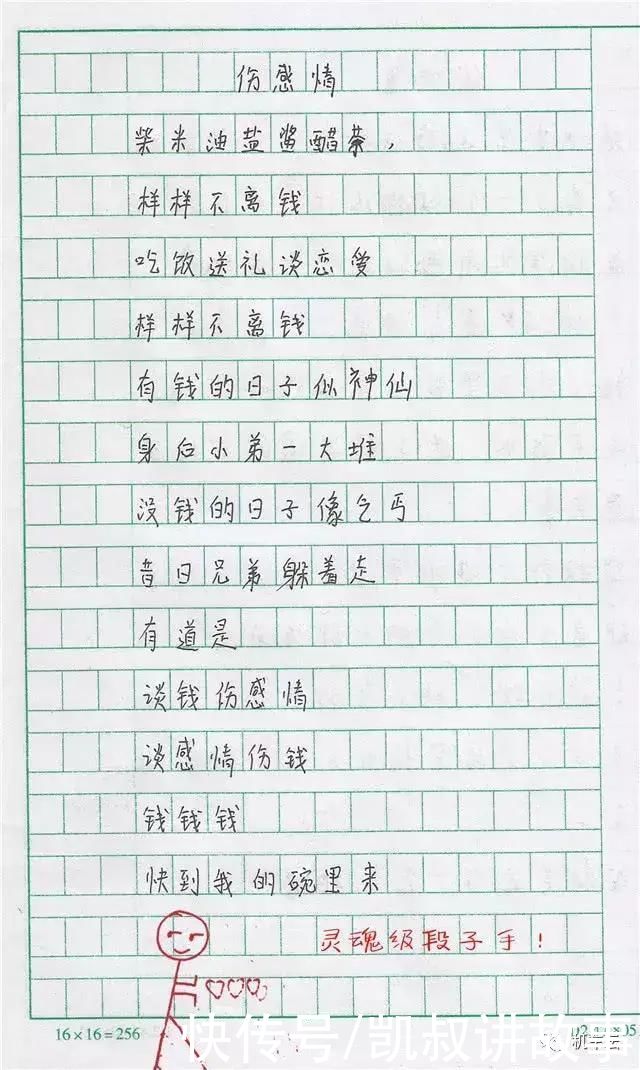 伤感情
柴米油盐酱醋茶，
样样不离钱
吃饭送礼谈恋爱
样样不离钱
有钱的日子似神仙
身后小弟一大堆
没钱的日子像乞丐
昔日兄弟躲着走
有道是
谈钱伤感情
谈感情伤钱
钱钱钱
快到我的碗里来
灵魂级段子手！
16×16=256
快传号/凯叔讲故事